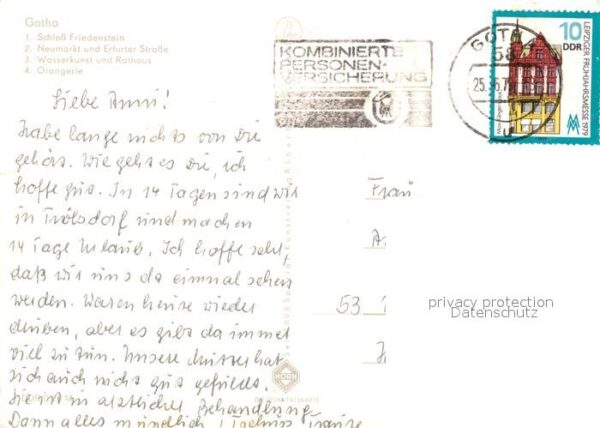 Gotha
1. Schloß Friedenstein
2. Neumarkt und Erfurter Straße
3. Wasserkunst und Rathaus
4. Orangerie
KOMBINIERTE
PERSONEN-
VERSICHERUNG
GOTHA
58
25.-6.79
u
10
DDR
LEIPZIGER FRÜHJAHRSMESSE 1979
Liebe Anni!
Habe lange nichts von Dir
gehört. Wie geht es Dir, ich
hoffe gut. In 14 Tagen sind wir
in und machen
14 Tage Urlaub. Ich hoffe sehr,
daß wir uns da einmal sehen
werden. Waren heute wieder
drüben, aber es gibt da immer
viel zu tun. Unsere Mutter hat
sich auch nicht gut gefühlt.
Sie ist in ärztlicher Behandlung
Dann alles mündlich!
Frau
A.
53
privacy protection
Datenschutz